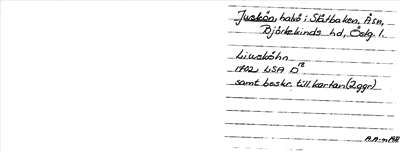 Juskön, halvö i Slätbaken, Åsn,
Björkekinds hd, Östg. l.
Liuskóhn
1702 LSA D¹²
samt beskr. till kartan (2ggr)